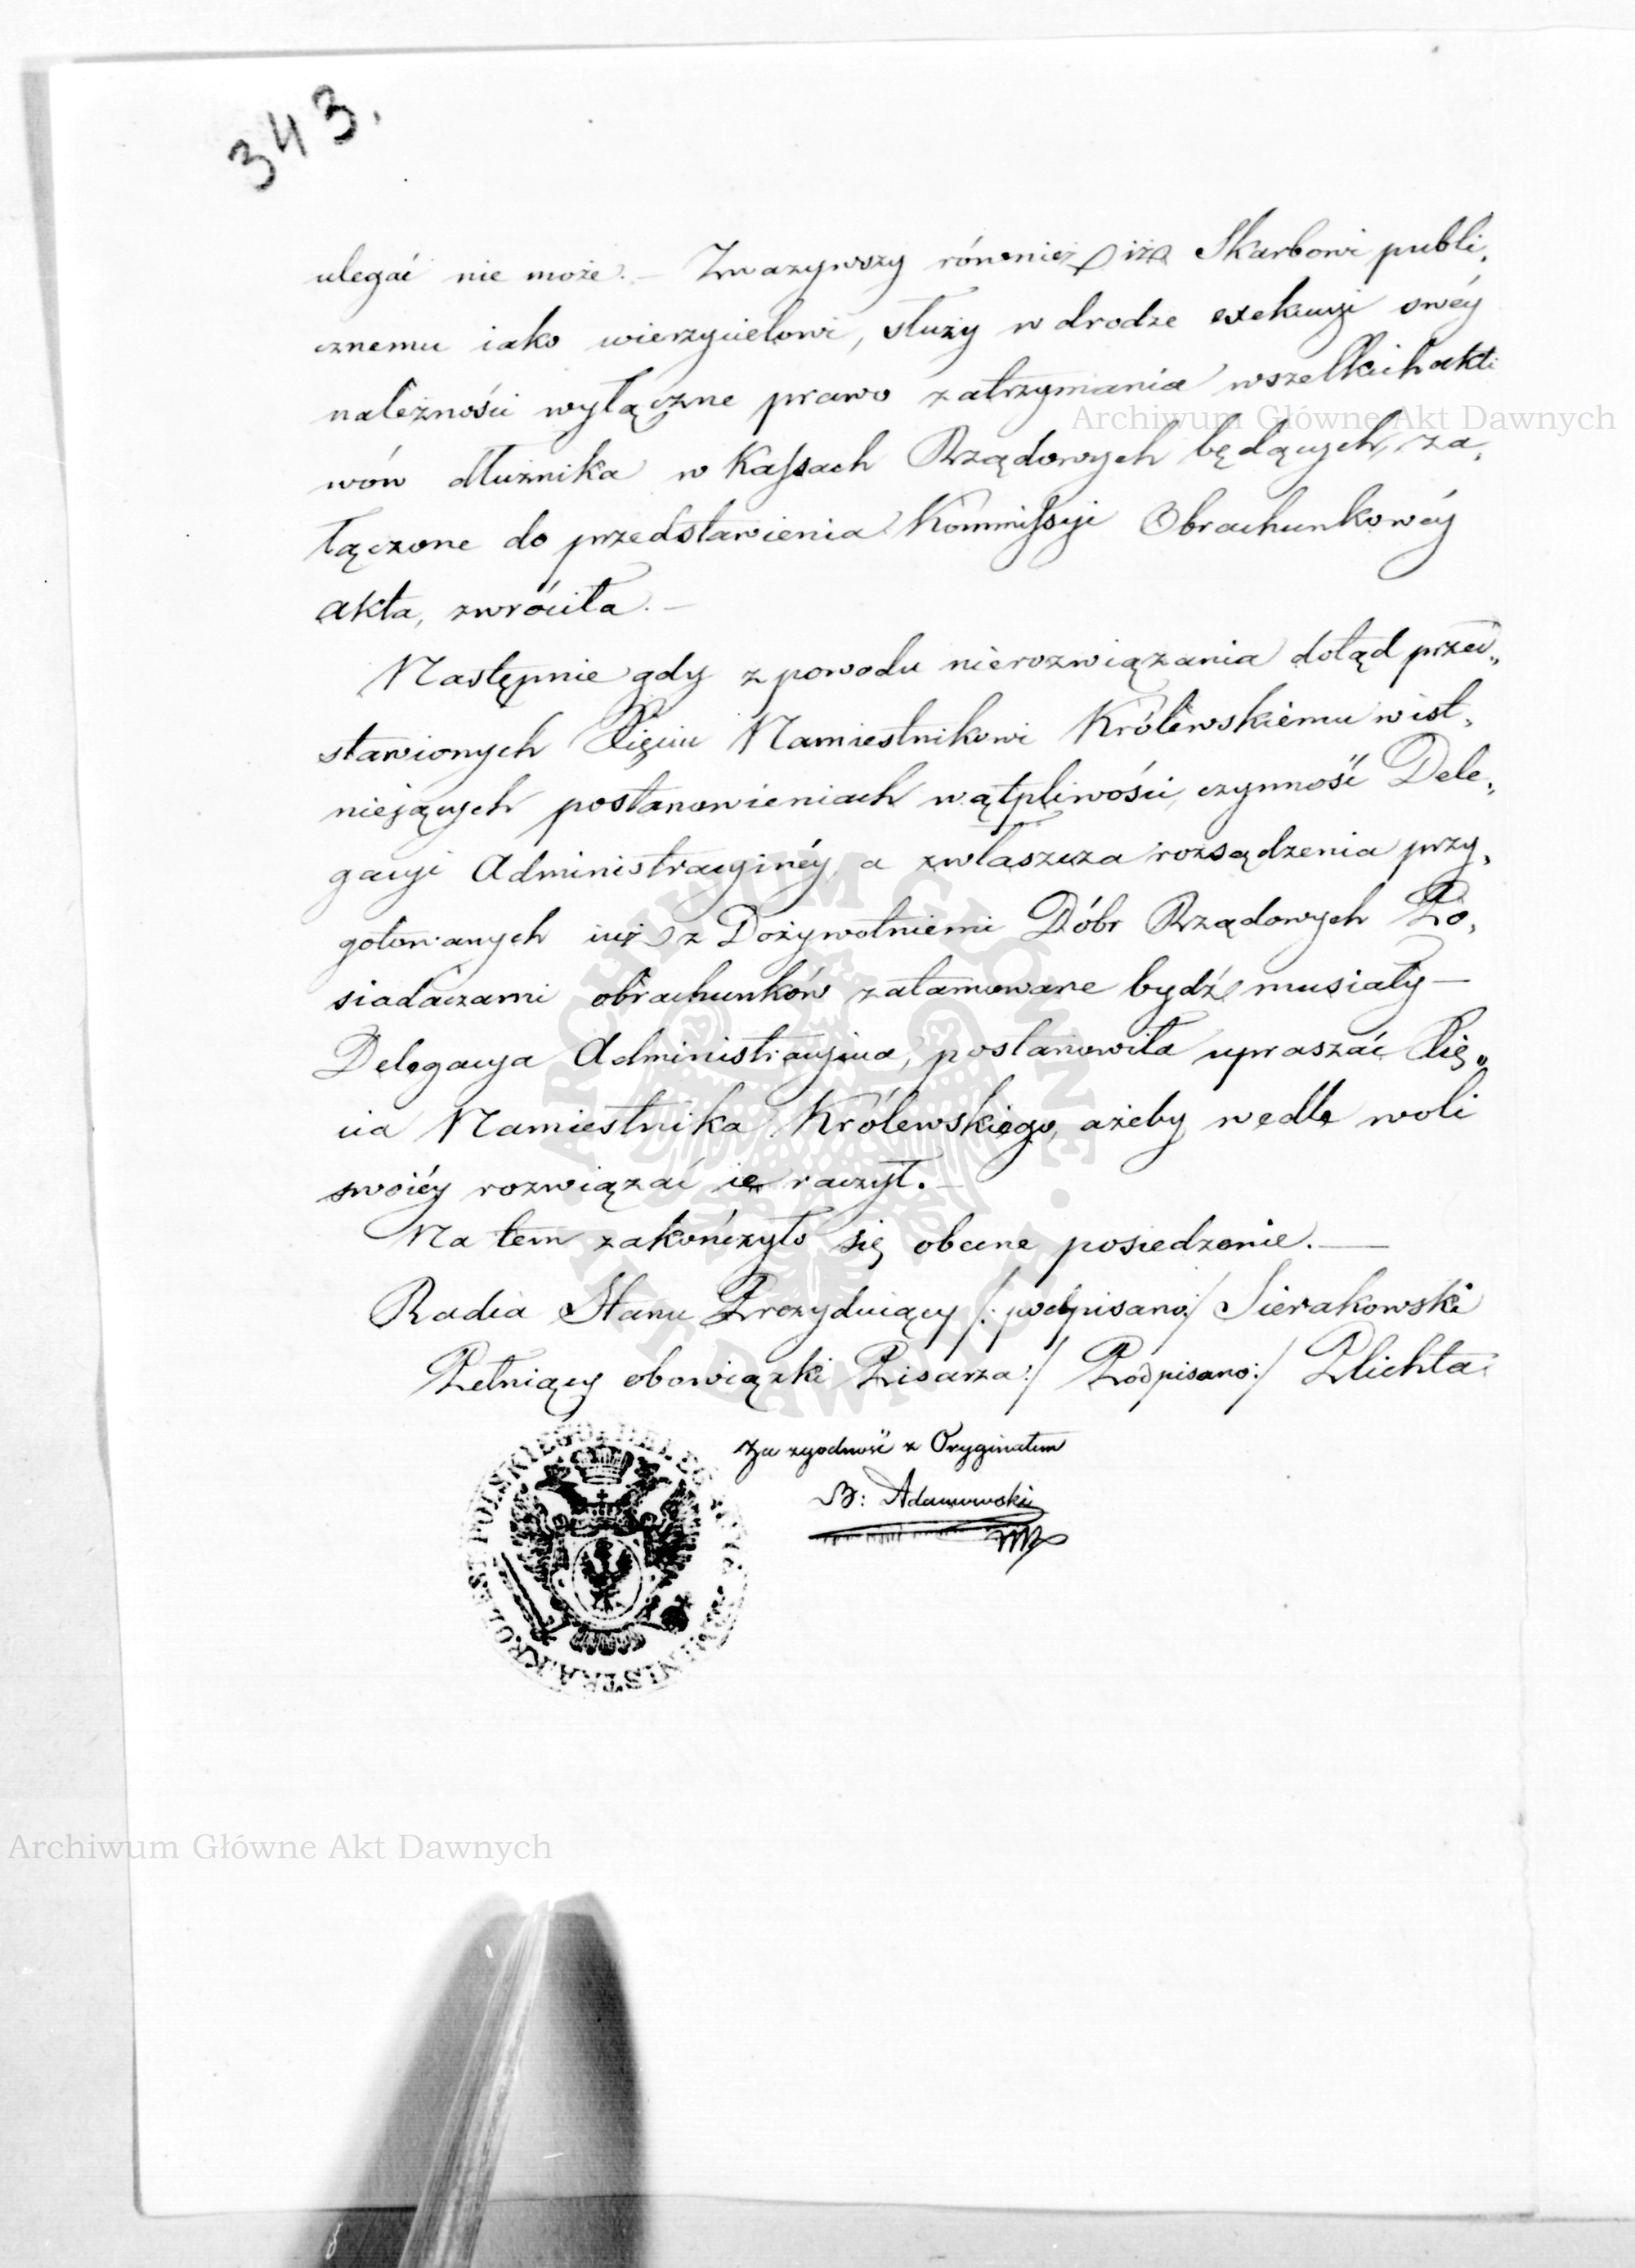 343.
ulegać nie może. – Zważywszy również iż Skarbowi publi,
cznemu iako wierzycielowi, służy w drodze exekucyi swéy
należności wyłączne prawo zatrzymania wszelkich akti
Archiwum Główne Akt Dawnych
wów dłużnika w Kassach Rządowych będących, za,
łączone do przedstawienia Kommissyi Obrachunkowéy
akta, zwróciła. –
Następnie gdy z powodu nierozwiązania dotąd przed„
stawionych Xięciu Namiestnikowi Królewskiemu w ist,
niejących postanowieniach wątpliwości, czynność Dele,
gacyi Administracyinéy, a zwłaszcza rozsądzenia przy,
gotowanych iuż z Dożywotniemi Dóbr Rządowych Po,
siadaczami obrachunków zatamowane bydź musiały –
Delegacya Administracyina, postanowiła upraszać Xię„
cia Namiestnika Królewskiego, ażeby wedle woli
swoiéy rozwiązać ie raczył. –
Na tem zakończyło się obecne posiedzenie. –
Radca Stanu Prezyduiący /: podpisano :/ Sierakowski
Pełniący obowiązki Pisarza :/ Podpisano :/ Plichta
Za zgodność z Oryginałem
B: Adamowski
ARCHIWUM GŁÓWNE AKT DAWNYCH
KROLEST POLSKIEGO DELEGACYA ADMINISTRA.
Archiwum Główne Akt Dawnych